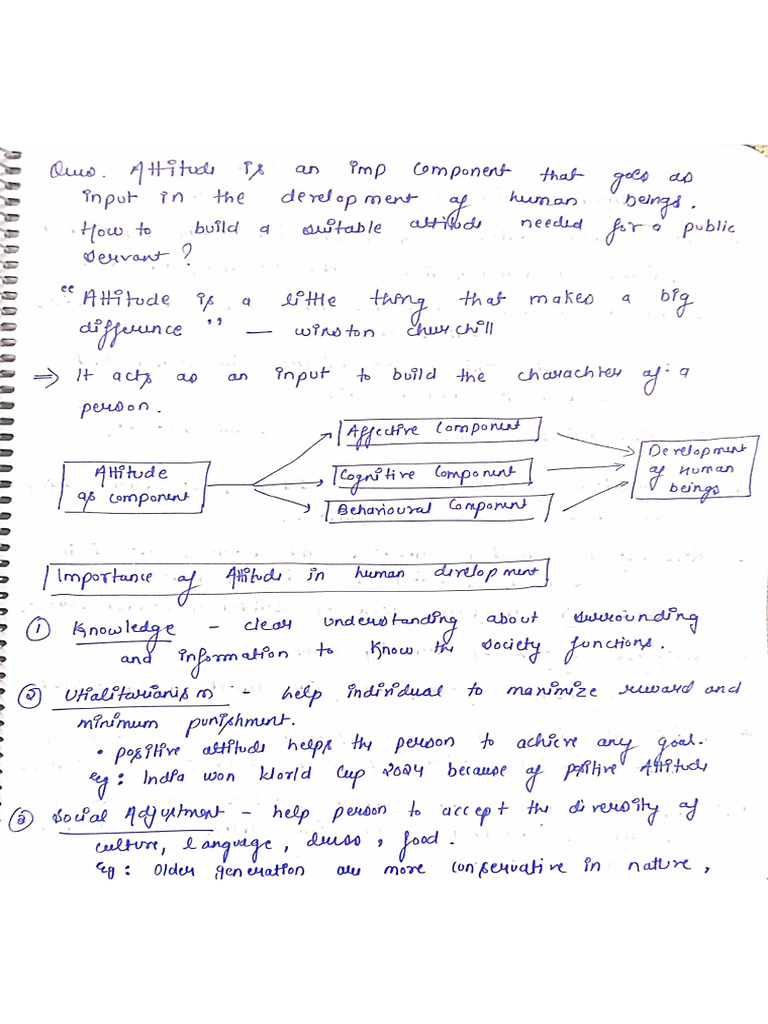 Ques. Attitude is an imp component that goes as
input in the development of human beings.
How to build a suitable attitude needed for a public
servant?
"Attitude is a little thing that makes a big
difference" — winston churchill
⇒ It acts as an input to build the charachter of a
person.
Attitude
as component
Affective Component
Cognitive Component
Behavioural Component
Development
of Human
beings
Importance of Attitude in human development
① Knowledge - clear understanding about surrounding
and information to know the society functions.
② Utialitarianism - help individual to maximize reward and
minimum punishment.
• positive attitude helps the person to achieve any goal.
eg: India won World Cup 2024 because of positive Attitude
③ Social Adjustment - help person to accept the diversity of
culture, language, dress, food.
eg: Older generation are more conservative in nature,